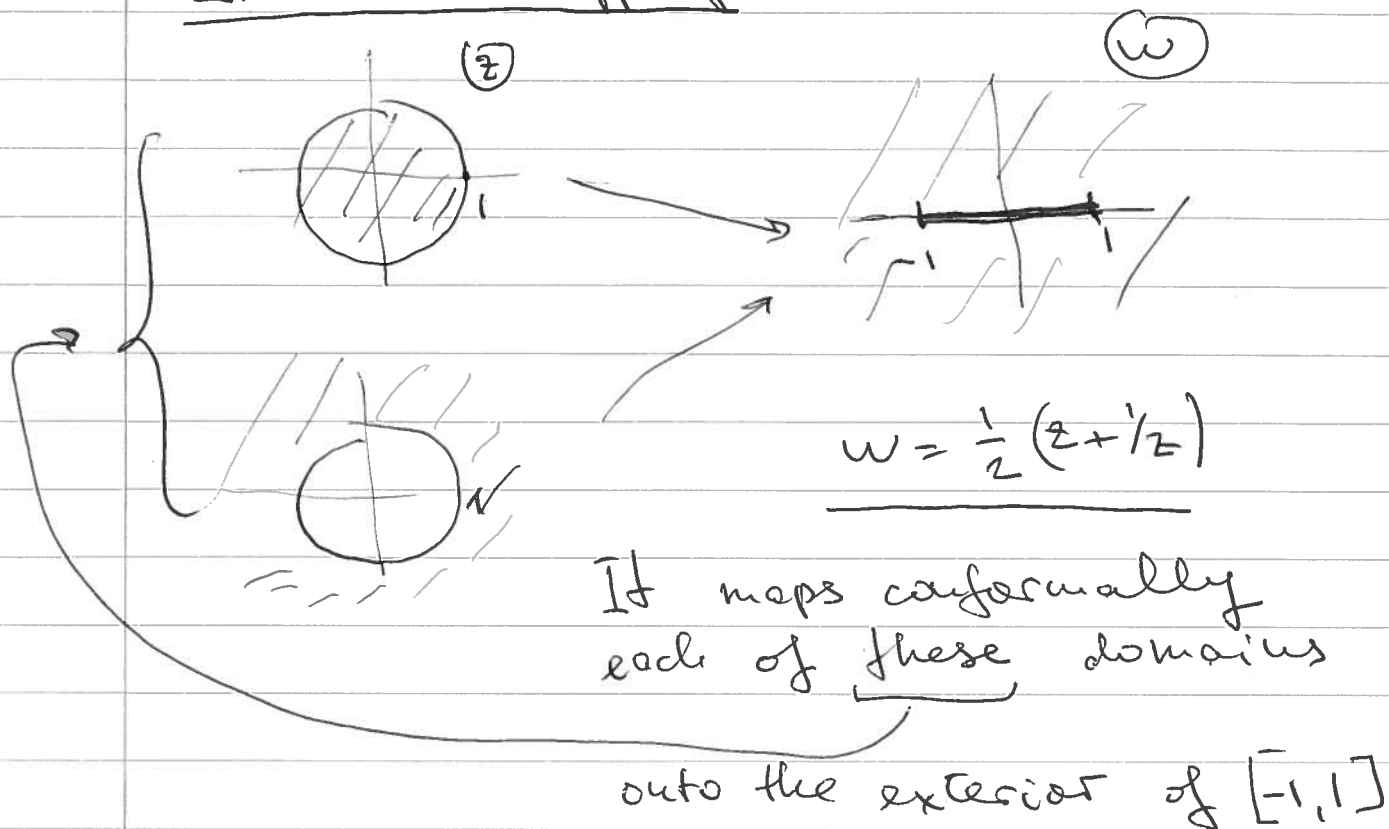 z
w
1
-1
1
w = 1/2 (z + 1/z)
It maps conformally
each of these domains
onto the exterior of [-1, 1]